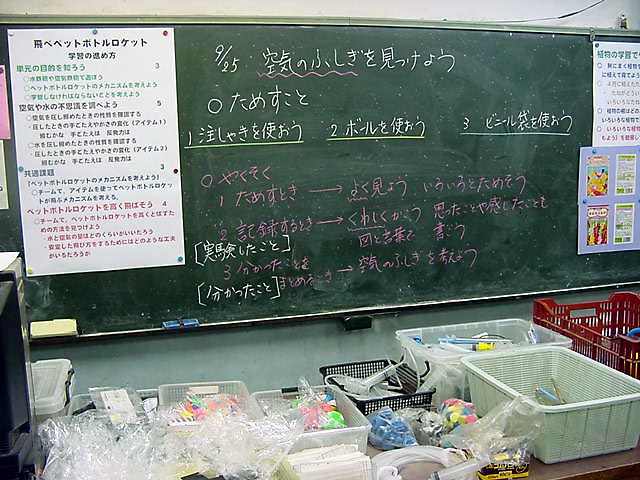 飛べペットボトルロケット
学習の進め方
単元の目的を知ろう 3
○水鉄砲や空気鉄砲で遊ぼう
○ペットボトルロケットのメカニズムを考えよう
○学習しなければならないことを考えよう
空気や水の不思議を調べよう 5
○空気を圧し縮めたときの性質を確認する
・圧したときの手ごたえやかさの変化(アイテム1)
○水を圧し縮めたときの性質を確認する
・圧したときの手ごたえやかさの変化(アイテム2)
共通課題 3
「ペットボトルロケットのメカニズムを考えよう」
○チームで、アイテムを使ってペットボトルロケットが飛ぶメカニズムを考える。
ペットボトルロケットを高く飛ばそう 4
○チームで、ペットボトルロケットを高くとばすための方法を見つけよう
・水と空気の量はどのくらいがいいだろう
・安定した飛び方をするためにはどのような工夫がいるだろうか
9/25 空気のふしぎを見つけよう
○ためすこと
1 注しゃきを使おう 2 ボールを使おう 3 ビニール袋を使おう
○やくそく
1 ためすとき → よく見よう いろいろとためそう
2 記録するとき → くわしくかこう 思ったことや感じたことも
[実験したこと] 図と言葉で 書こう
3 分かったことを
まとめるとき → 空気のふしぎを考えよう
[分かったこと]
植物の学習で